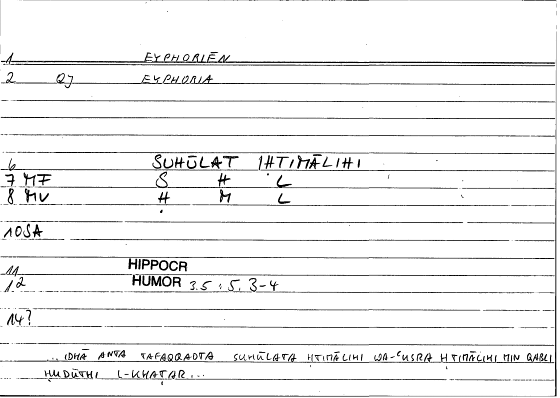 1 EYPHORIĒN
2 QJ EYPHORIA
6 SUHŪLAT IḤTIMĀLIHI
7 MF S H L
8 MV Ḥ M L
10 SA
11 HIPPOCR
12 HUMOR 3.5 : 5, 3-4
14?
...IDHĀ ANTA TAFAQQADTA SUHŪLATA ḤTIMĀLIHI WA-ʿUSRA ḤTIMĀLIHI MIN QABLI
ḤUDŪTHI L-KHAṬAR...